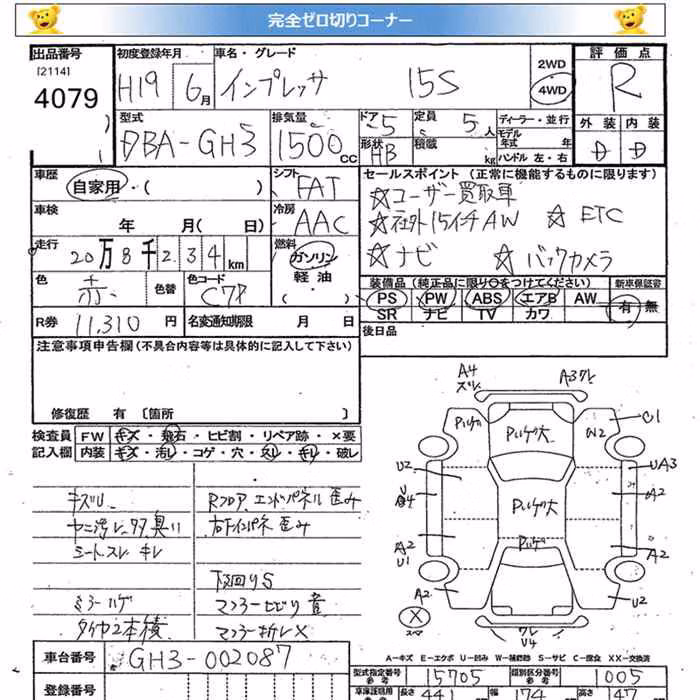 完全ゼロ切りコーナー
出品番号 初度登録年月 車名・グレード 2WD 評価点
[2114] 4WD
4079 H19 6月 インプレッサ 15S R
型式 排気量 ドア 5 定員 5人 ディーラー・並行 外装 内装
DBA-GH3 1500cc 形状 HB 積載 kg モデル年式 年式 ハンドル 左・右 D D
車歴 シフト セールスポイント (正常に機能するものに限ります)
自家用・( ) FAT ☆ユーザー買取車
車検 冷房 ☆社外15インチAW ☆ETC
年 月( 日) AAC ☆ナビ ☆バックカメラ
走行 燃料
20万8千234km ガソリン
色 色替 色コード 軽油 装備品(純正品に限り○をつけてください) 新車保証書
赤 C7P ( ) PS PW ABS エアB AW 有 無
SR ナビ TV カワ
R券 11,310円 名変通知期限 月 日 後日品
注意事項申告欄(不具合内容等は具体的に記入して下さい)
修復歴 有 〔箇所 〕
検査員 FW キズ・飛石・ヒビ割・リペア跡・×要
記入欄 内装 キズ・汚レ・コゲ・穴・スレ・キレ・破レ
キズU Rフロア、エンドパネル歪み
ヤニ汚レ、タバ臭い 右インパネ歪み
シートスレ キレ
下回りS
ミラーハゲ マフラービビリ音
タイヤ2本積 マフラー折レ×
A4 スレ A3クレ
Pハゲ Pハゲ大 W2 C1
U2 UA3
U A4 Pハゲ大 A2
A2 U1 Pハゲ A2
A2 U2
X スマ ワレ U4
A-キズ E-エクボ U-凹み W-補修跡 S-サビ C-腐食 XX-交換済
車台番号 GH3-002087
型式指定番号 参考 15705 類別区分番号 参考 005
登録番号 長さ 441 幅 174 高さ 147